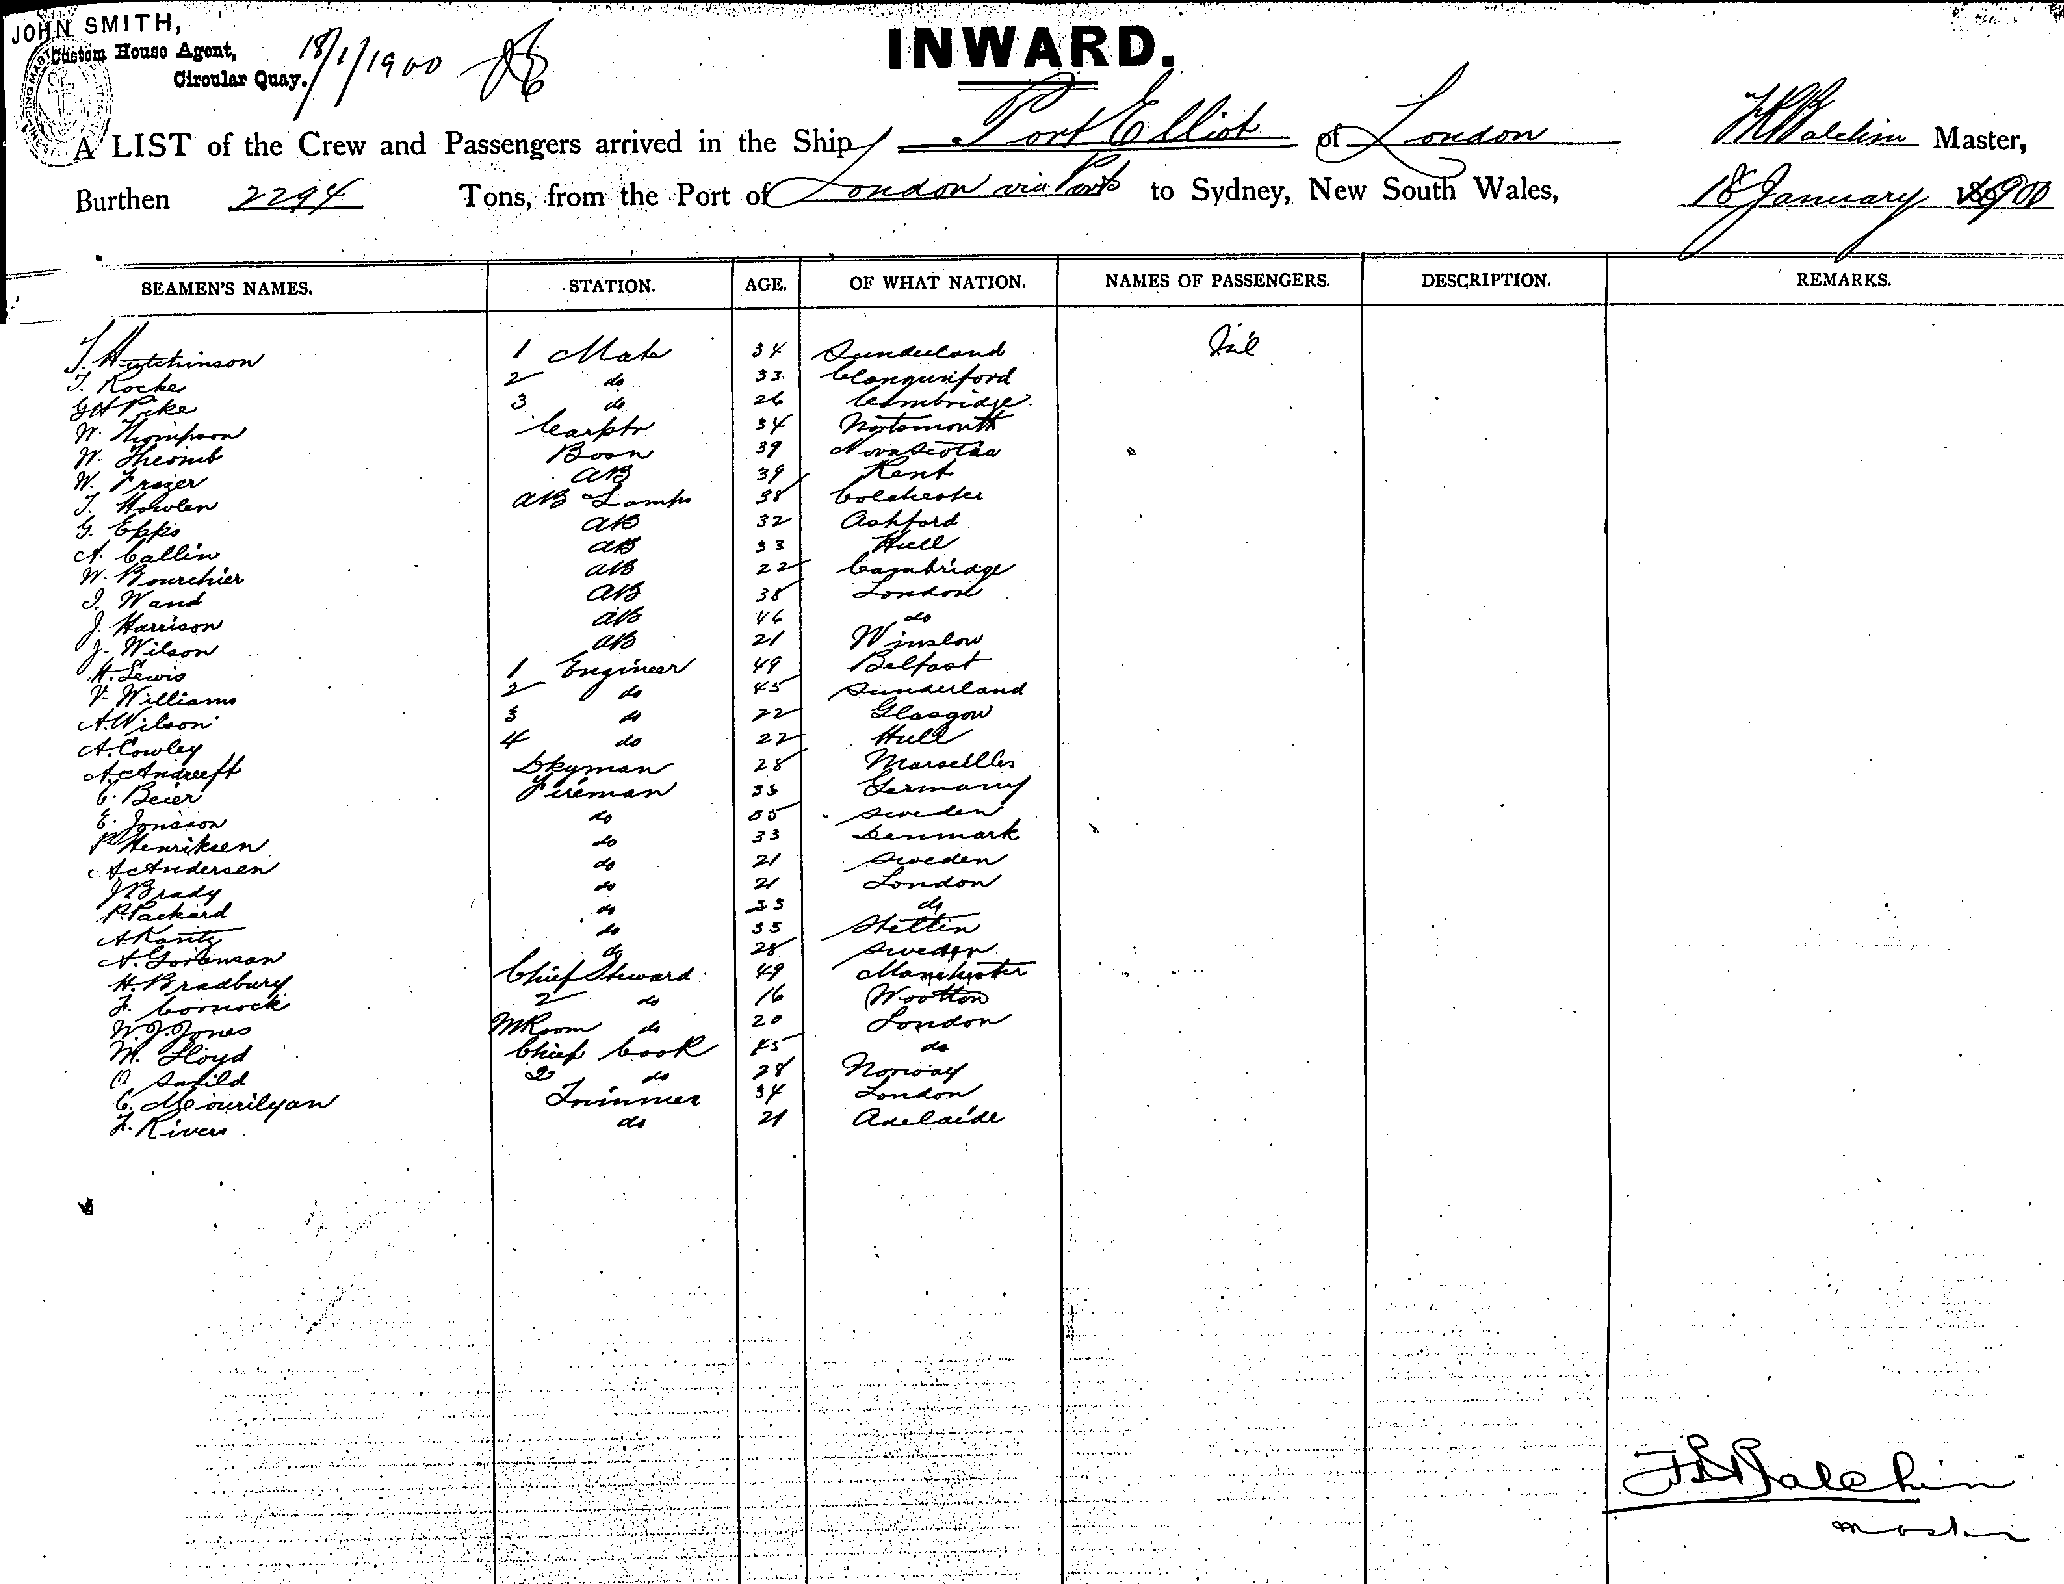 JOHN SMITH,
Custom House Agent,
Circular Quay.
18/1/1900
INWARD.
A LIST of the Crew and Passengers arrived in the Ship Port Elliot of London Balchin Master,
Burthen 2294 Tons, from the Port of London via Ports to Sydney, New South Wales, 18 January 1900
SEAMEN'S NAMES. STATION. AGE. OF WHAT NATION. NAMES OF PASSENGERS. DESCRIPTION. REMARKS.
T. Hutchinson 1 Mate 34 Sunderland Nil
T. Rocke 2 do 33 Clongunford
G H Pike 3 do 26 Cambridge
W. Thompson Carptr 34
W. Thcomb Bosn 39 Nova Scotia
W. Frazer AB 39 Kent
T. Howlen AB Lamps 38 Colchester
G. Epps AB 32 Ashford
A. Callin AB 33 Hull
W. Bourchier AB 22 Cambridge
J. Wand AB 38 London
J. Harrison AB 46 do
J. Wilson AB 21 Winslow
H. Lewis 1 Engineer 49 Belfast
V. Williams 2 do 45 Sunderland
A. Wilson 3 do 22 Glasgow
A. Cowley 4 do 22 Hull
A. Andreeft Dkyman 28 Marseilles
C. Beier Fireman 33 Germany
E. Jonsson do 35 Sweden
P. Henriksen do 33 Denmark
A. Andersen do 21 Sweden
J. Brady do 21 London
P. Packard do 33 do
A Kantz do 35 Stettin
A. Goranson do 28 Sweden
H. Bradbury Chief Steward 49 Manchester
F. Cornock 2 do 16 Wootton
W. J. Jones MRoom do 20 London
W. Lloyd Chief Cook 45 do
O 2 do 28 Norway
C. Mourilyan Trimmer 34 London
F. Rivers do 21 Adelaide
Balchin
Master